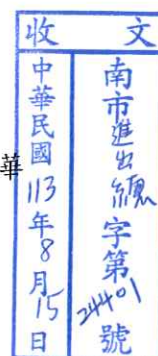 收文
南市進出總字第24401號
中華民國113年8月15日
華